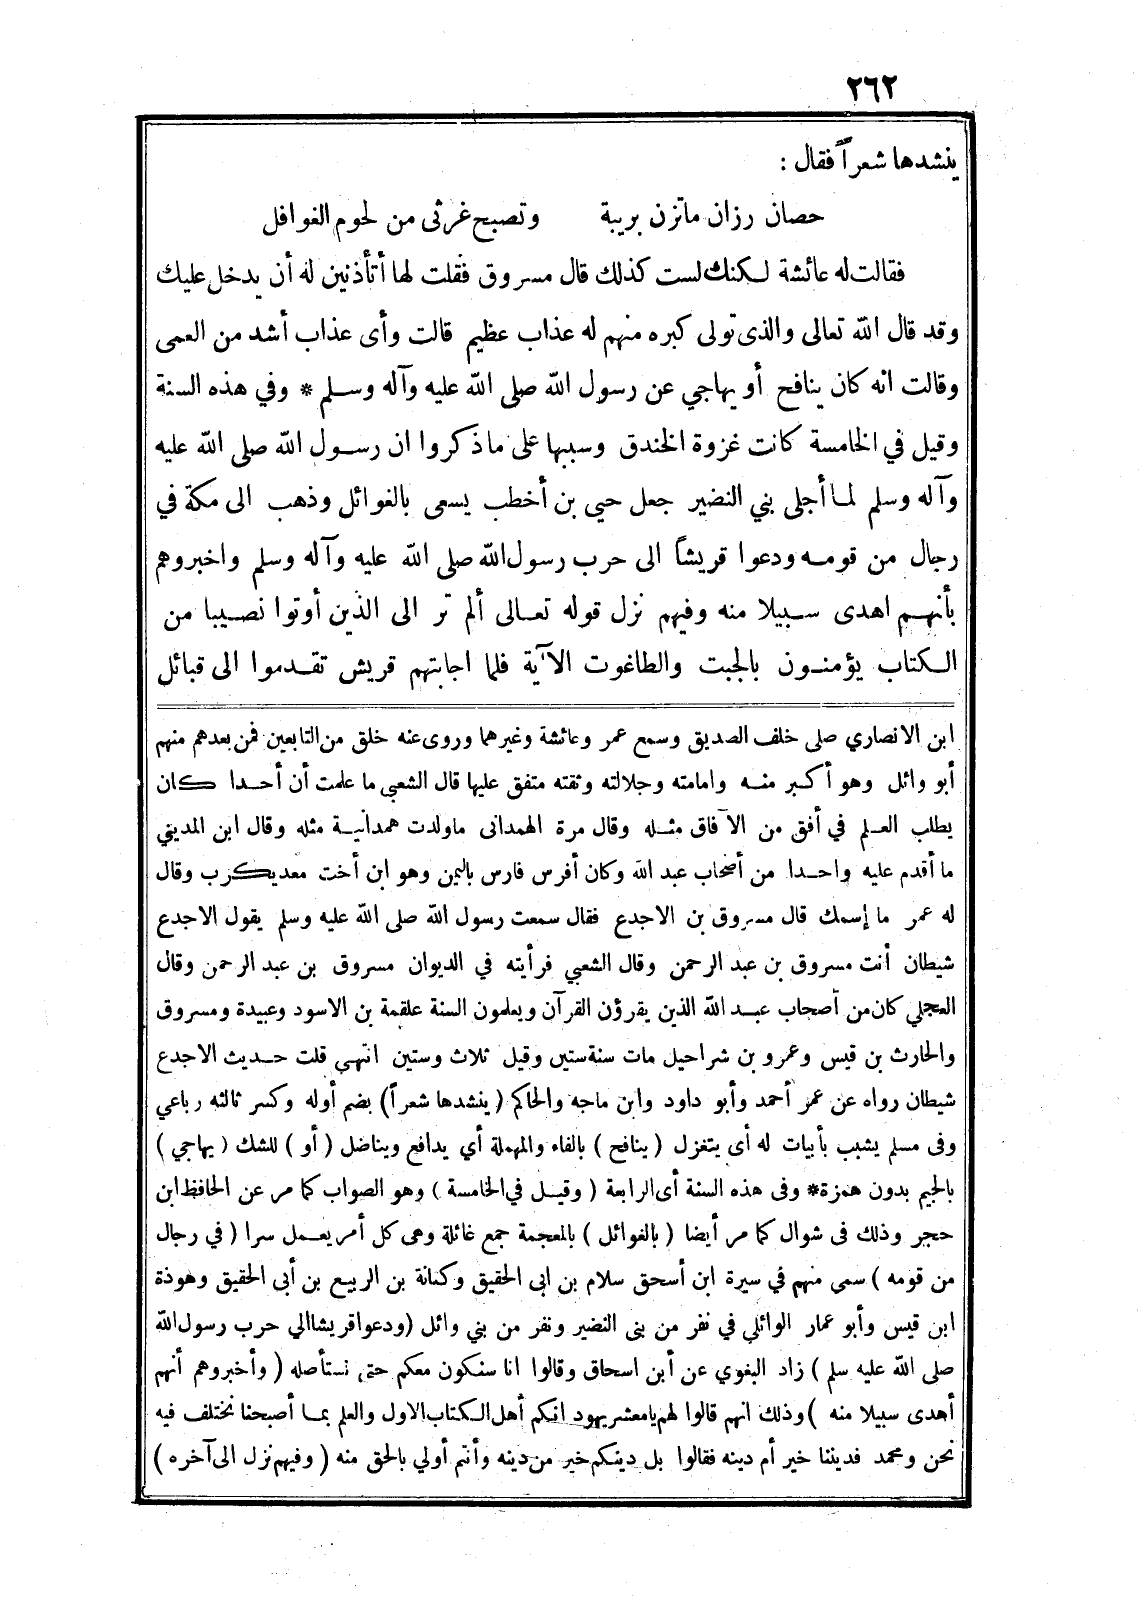 ٢٦٢
ينشدها شعراً فقال :
حصان رزان ماتزن بريبة وتصبح غرثى من لحوم الغوافل
فقالت له عائشة لكنك لست كذلك قال مسروق فقلت لها أتأذنين له أن يدخل عليك
وقد قال الله تعالى والذى تولى كبره منهم له عذاب عظيم قالت وأى عذاب أشد من العمى
وقالت انه كان ينافح أو يهاجي عن رسول الله صلى الله عليه وآله وسلم * وفي هذه السنة
وقيل في الخامسة كانت غزوة الخندق وسببها على ماذكروا ان رسول الله صلى الله عليه
وآله وسلم لما أجلى بني النضير جعل حيي بن أخطب يسعى بالغوائل وذهب الى مكة في
رجال من قومه ودعوا قريشاً الى حرب رسول الله صلى الله عليه وآله وسلم واخبروهم
بأنهم اهدى سبيلا منه وفيهم نزل قوله تعالى ألم تر الى الذين أوتوا نصيبا من
الكتاب يؤمنون بالجبت والطاغوت الآية فلما اجابتهم قريش تقدموا الى قبائل
ابن الانصاري صلى خلف الصديق وسمع عمر وعائشة وغيرهما وروى عنه خلق من التابعين فمن بعدهم منهم
أبو وائل وهو أكبر منه وامامته وجلالته وثقته متفق عليها قال الشعبي ما علمت أن أحدا كان
يطلب العلم في أفق من الآفاق مثله وقال مرة الهمدانى ماولدت همدانية مثله وقال ابن المديني
ما أقدم عليه واحدا من أصحاب عبد الله وكان أفرس فارس باليمن وهو ابن أخت معديكرب وقال
له عمر ما إسمك قال مسروق بن الاجدع فقال سمعت رسول الله صلى الله عليه وسلم يقول الاجدع
شيطان أنت مسروق بن عبد الرحمن وقال الشعبي فرأيته في الديوان مسروق بن عبد الرحمن وقال
العجلي كان من أصحاب عبد الله الذين يقرؤن القرآن ويعلمون السنة علقمة بن الاسود وعبيدة ومسروق
والحارث بن قيس وعمرو بن شراحيل مات سنة ستين وقيل ثلاث وستين انتهي قلت حديث الاجدع
شيطان رواه عن عمر أحمد وأبو داود وابن ماجه والحاكم ( ينشدها شعراً ) بضم أوله وكسر ثالثه رباعي
وفى مسلم يشبب بأبيات له أى يتغزل ( ينافح ) بالفاء والمهملة أي يدافع ويناضل ( أو ) للشك ( يهاجي )
بالجيم بدون همزة* وفى هذه السنة أى الرابعة ( وقيل في الخامسة ) وهو الصواب كما مر عن الحافظ ابن
حجر وذلك فى شوال كما مر أيضا ( بالغوائل ) بالمعجمة جمع غائلة وهى كل أمر يعمل سرا ( في رجال
من قومه ) سمى منهم في سيرة ابن أسحق سلام بن ابى الحقيق وكنانة بن الربيع بن أبى الحقيق وهوذة
ابن قيس وأبو عمار الوائلي في نفر من بنى النضير ونفر من بني وائل ( ودعوا قريشا الي حرب رسول الله
صلى الله عليه سلم ) زاد البغوي عن أبن اسحاق وقالوا انا سنكون معكم حتى نستأصله ( وأخبروهم أنهم
أهدى سبيلا منه ) وذلك انهم قالوا لهم يامعشر يهود انكم أهل الكتاب الاول والعلم بما أصبحنا نختلف فيه
نحن ومحمد فديننا خير أم دينه فقالوا بل دينكم خير من دينه وأنتم أولي بالحق منه ( وفيهم نزل الى آخره )